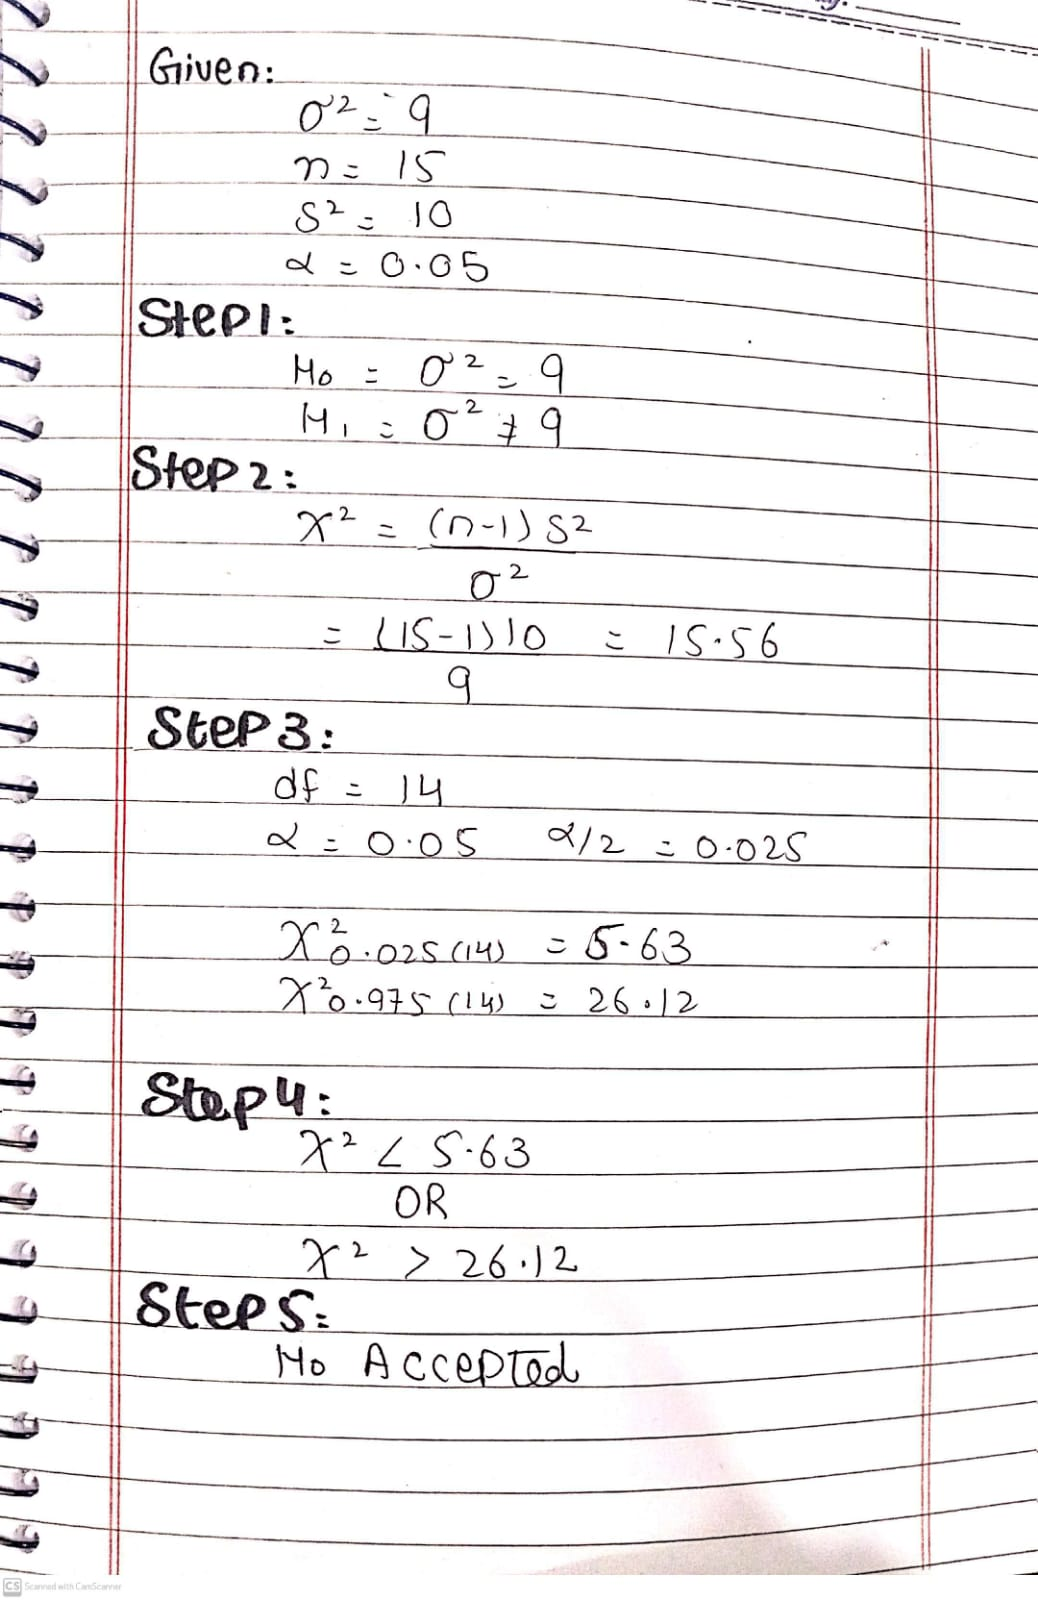 Given:
σ² = 9
n = 15
S² = 10
α = 0.05
Step1:
H₀ = σ² = 9
H₁ = σ² ≠ 9
Step 2:
χ² = (n-1) S²
σ²
= (15-1)10 = 15.56
9
Step 3:
df = 14
α = 0.05 α/2 = 0.025
χ²0.025 (14) = 5.63
χ²0.975 (14) = 26.12
Step 4:
χ² < 5.63
OR
χ² > 26.12
Step 5:
H₀ Accepted
CS Scanned with CamScanner